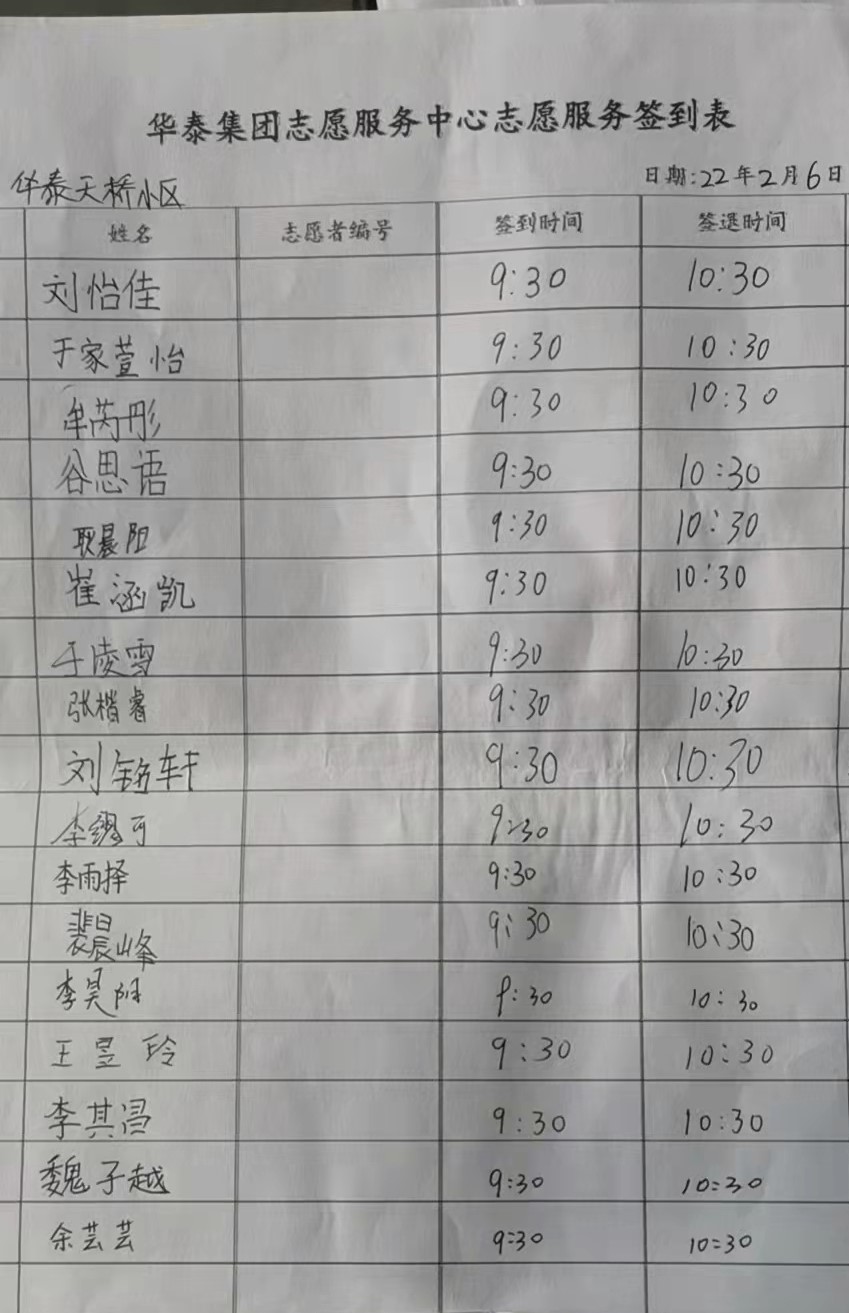 华泰集团志愿服务中心志愿服务签到表
华泰天桥小区 日期:22年2月6日
姓名 志愿者编号 签到时间 签退时间
刘怡佳 9:30 10:30
于家萱怡 9:30 10:30
牟芮彤 9:30 10:30
谷思语 9:30 10:30
耿晨阳 9:30 10:30
崔涵凯 9:30 10:30
于凌雪 9:30 10:30
张楷睿 9:30 10:30
刘铭轩 9:30 10:30
李 可 9:30 10:30
李雨择 9:30 10:30
裴晨峰 9:30 10:30
李昊阳 9:30 10:30
王昱玲 9:30 10:30
李其昌 9:30 10:30
魏子越 9:30 10:30
余芸芸 9:30 10:30